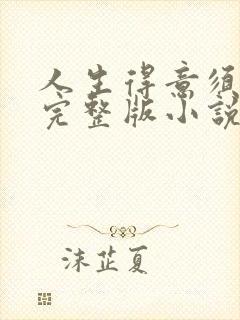 人生得意须
完整版小說
沫芷夏